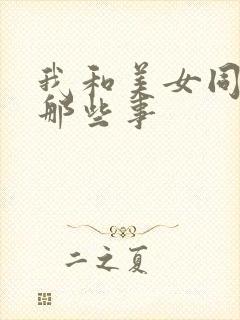 我和美女同
那些事
二之夏